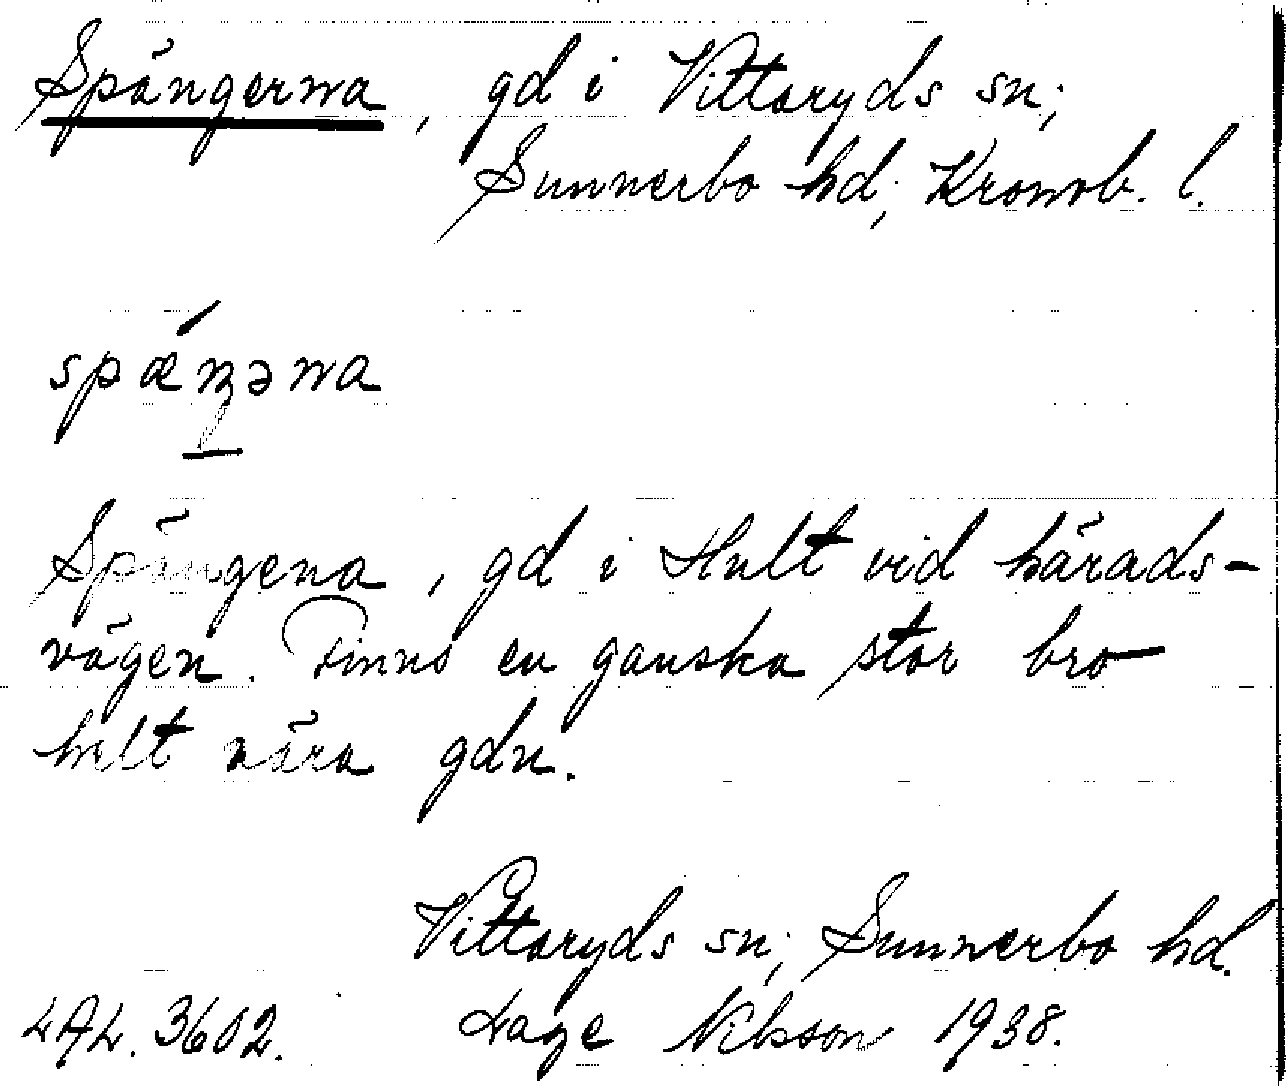 Spängerna, gd i Vittaryds sn;
Sunnerbo hd; Kronob. l.
spǽŋəna
Spängena, gd i Hult vid härads-
vägen. Finns en ganska stor bro
helt nära gdn.
Vittaryds sn; Sunnerbo hd.
LAL. 3602. Tage Nilsson 1938.